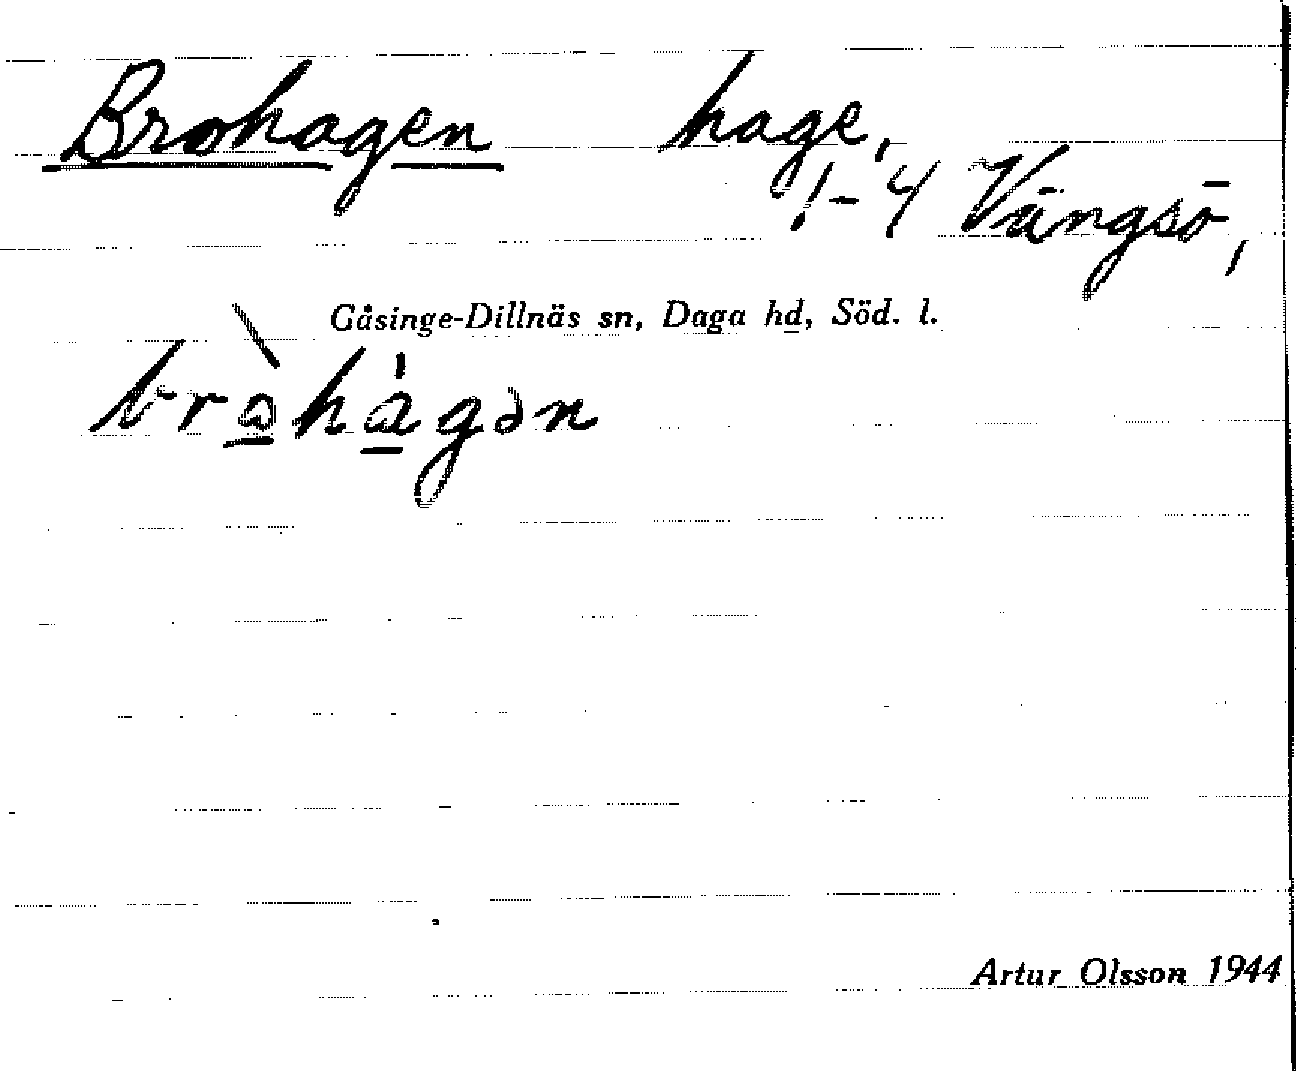 Brohagen hage,
1-4 Vängsö,
Gåsinge-Dillnäs sn, Daga hd, Söd. l.
Artur Olsson 1944